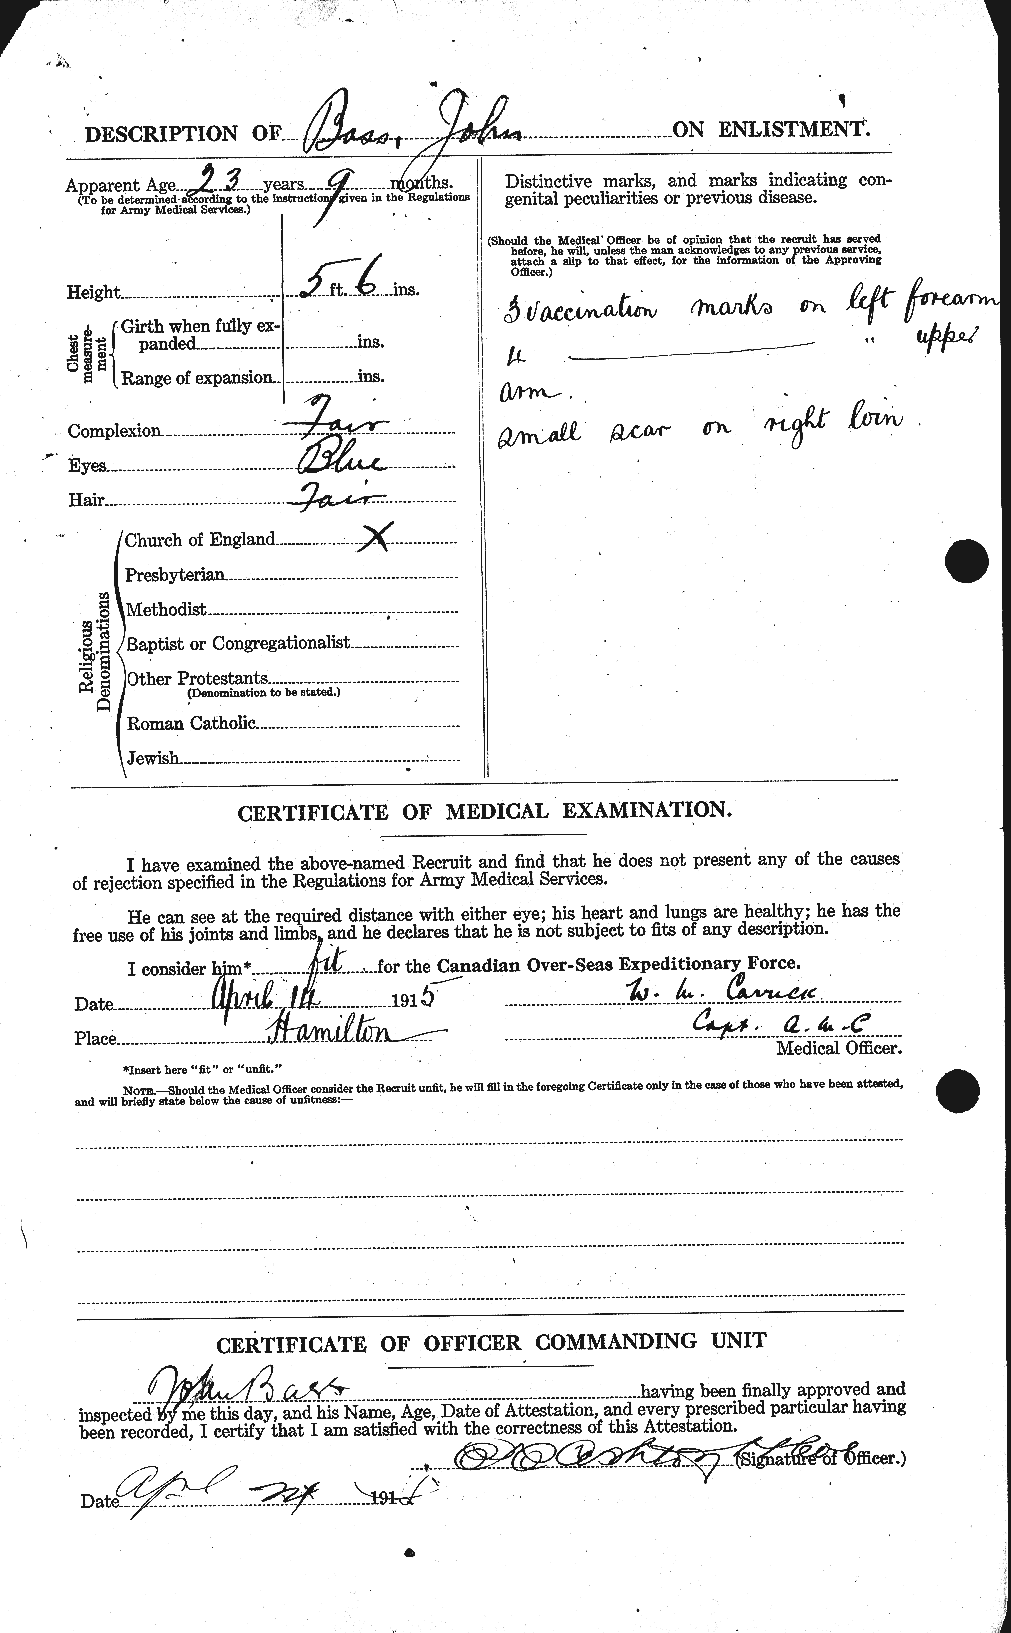 DESCRIPTION OF Bass, John ON ENLISTMENT.
Apparent Age 23 years 9 months.
(To be determined according to the instructions given in the Regulations
for Army Medical Services.)
Height 5 ft. 6 ins.
Chest measurement
Girth when fully ex-
panded ins.
Range of expansion ins.
Complexion Fair
Eyes Blue
Hair Fair
Religious Denominations
Church of England X
Presbyterian
Methodist
Baptist or Congregationalist
Other Protestants
(Denomination to be stated.)
Roman Catholic
Jewish
Distinctive marks, and marks indicating con-
genital peculiarities or previous disease.
(Should the Medical Officer be of opinion that the recruit has served
before, he will, unless the man acknowledges to any previous service,
attach a slip to that effect, for the information of the Approving
Officer.)
3 vaccination marks on left forearm
4 — " upper
arm.
small scar on right loin.
CERTIFICATE OF MEDICAL EXAMINATION.
I have examined the above-named Recruit and find that he does not present any of the causes
of rejection specified in the Regulations for Army Medical Services.
He can see at the required distance with either eye; his heart and lungs are healthy; he has the
free use of his joints and limbs, and he declares that he is not subject to fits of any description.
I consider him* fit for the Canadian Over-Seas Expeditionary Force.
Date April 14 1915 W. M. Carrick
Place Hamilton Capt. A.M.C
Medical Officer.
*Insert here "fit" or "unfit."
NOTE.—Should the Medical Officer consider the Recruit unfit, he will fill in the foregoing Certificate only in the case of those who have been attested,
and will briefly state below the cause of unfitness:—
CERTIFICATE OF OFFICER COMMANDING UNIT
John Bass having been finally approved and
inspected by me this day, and his Name, Age, Date of Attestation, and every prescribed particular having
been recorded, I certify that I am satisfied with the correctness of this Attestation.
Ashton (Signature of Officer.)
Date Apl 191